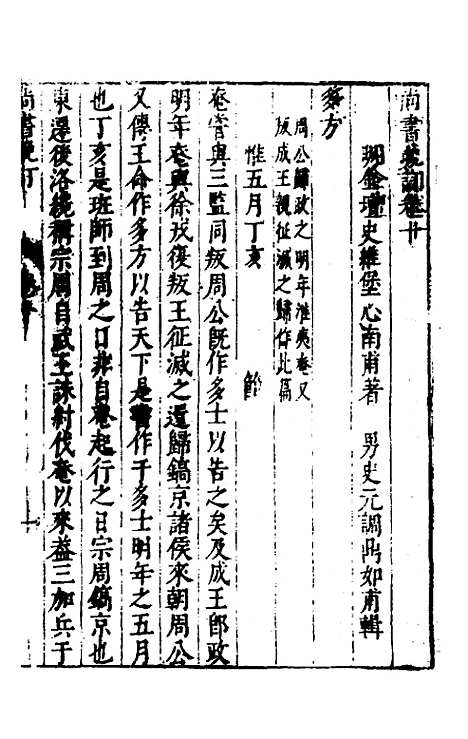 尚書晚訂卷十
明金壇史維堡心南甫著　男史元調鼎如甫輯
多方
周公歸政之明年淮夷奄又
叛成王親征滅之歸作此篇
惟五月丁亥
奄嘗與三監同叛周公旣作多士以告之矣及成王卽政
明年奄與徐戎復叛王征滅之還歸鎬京諸侯來朝周公
又傳王命作多方以告天下是書作于多士明年之五月
也丁亥是班師到周之日非自奄起行之日宗周鎬京也
東遷後洛纔稱宗周自武王誅紂伐奄以來蓋三加兵于
尚書晚訂